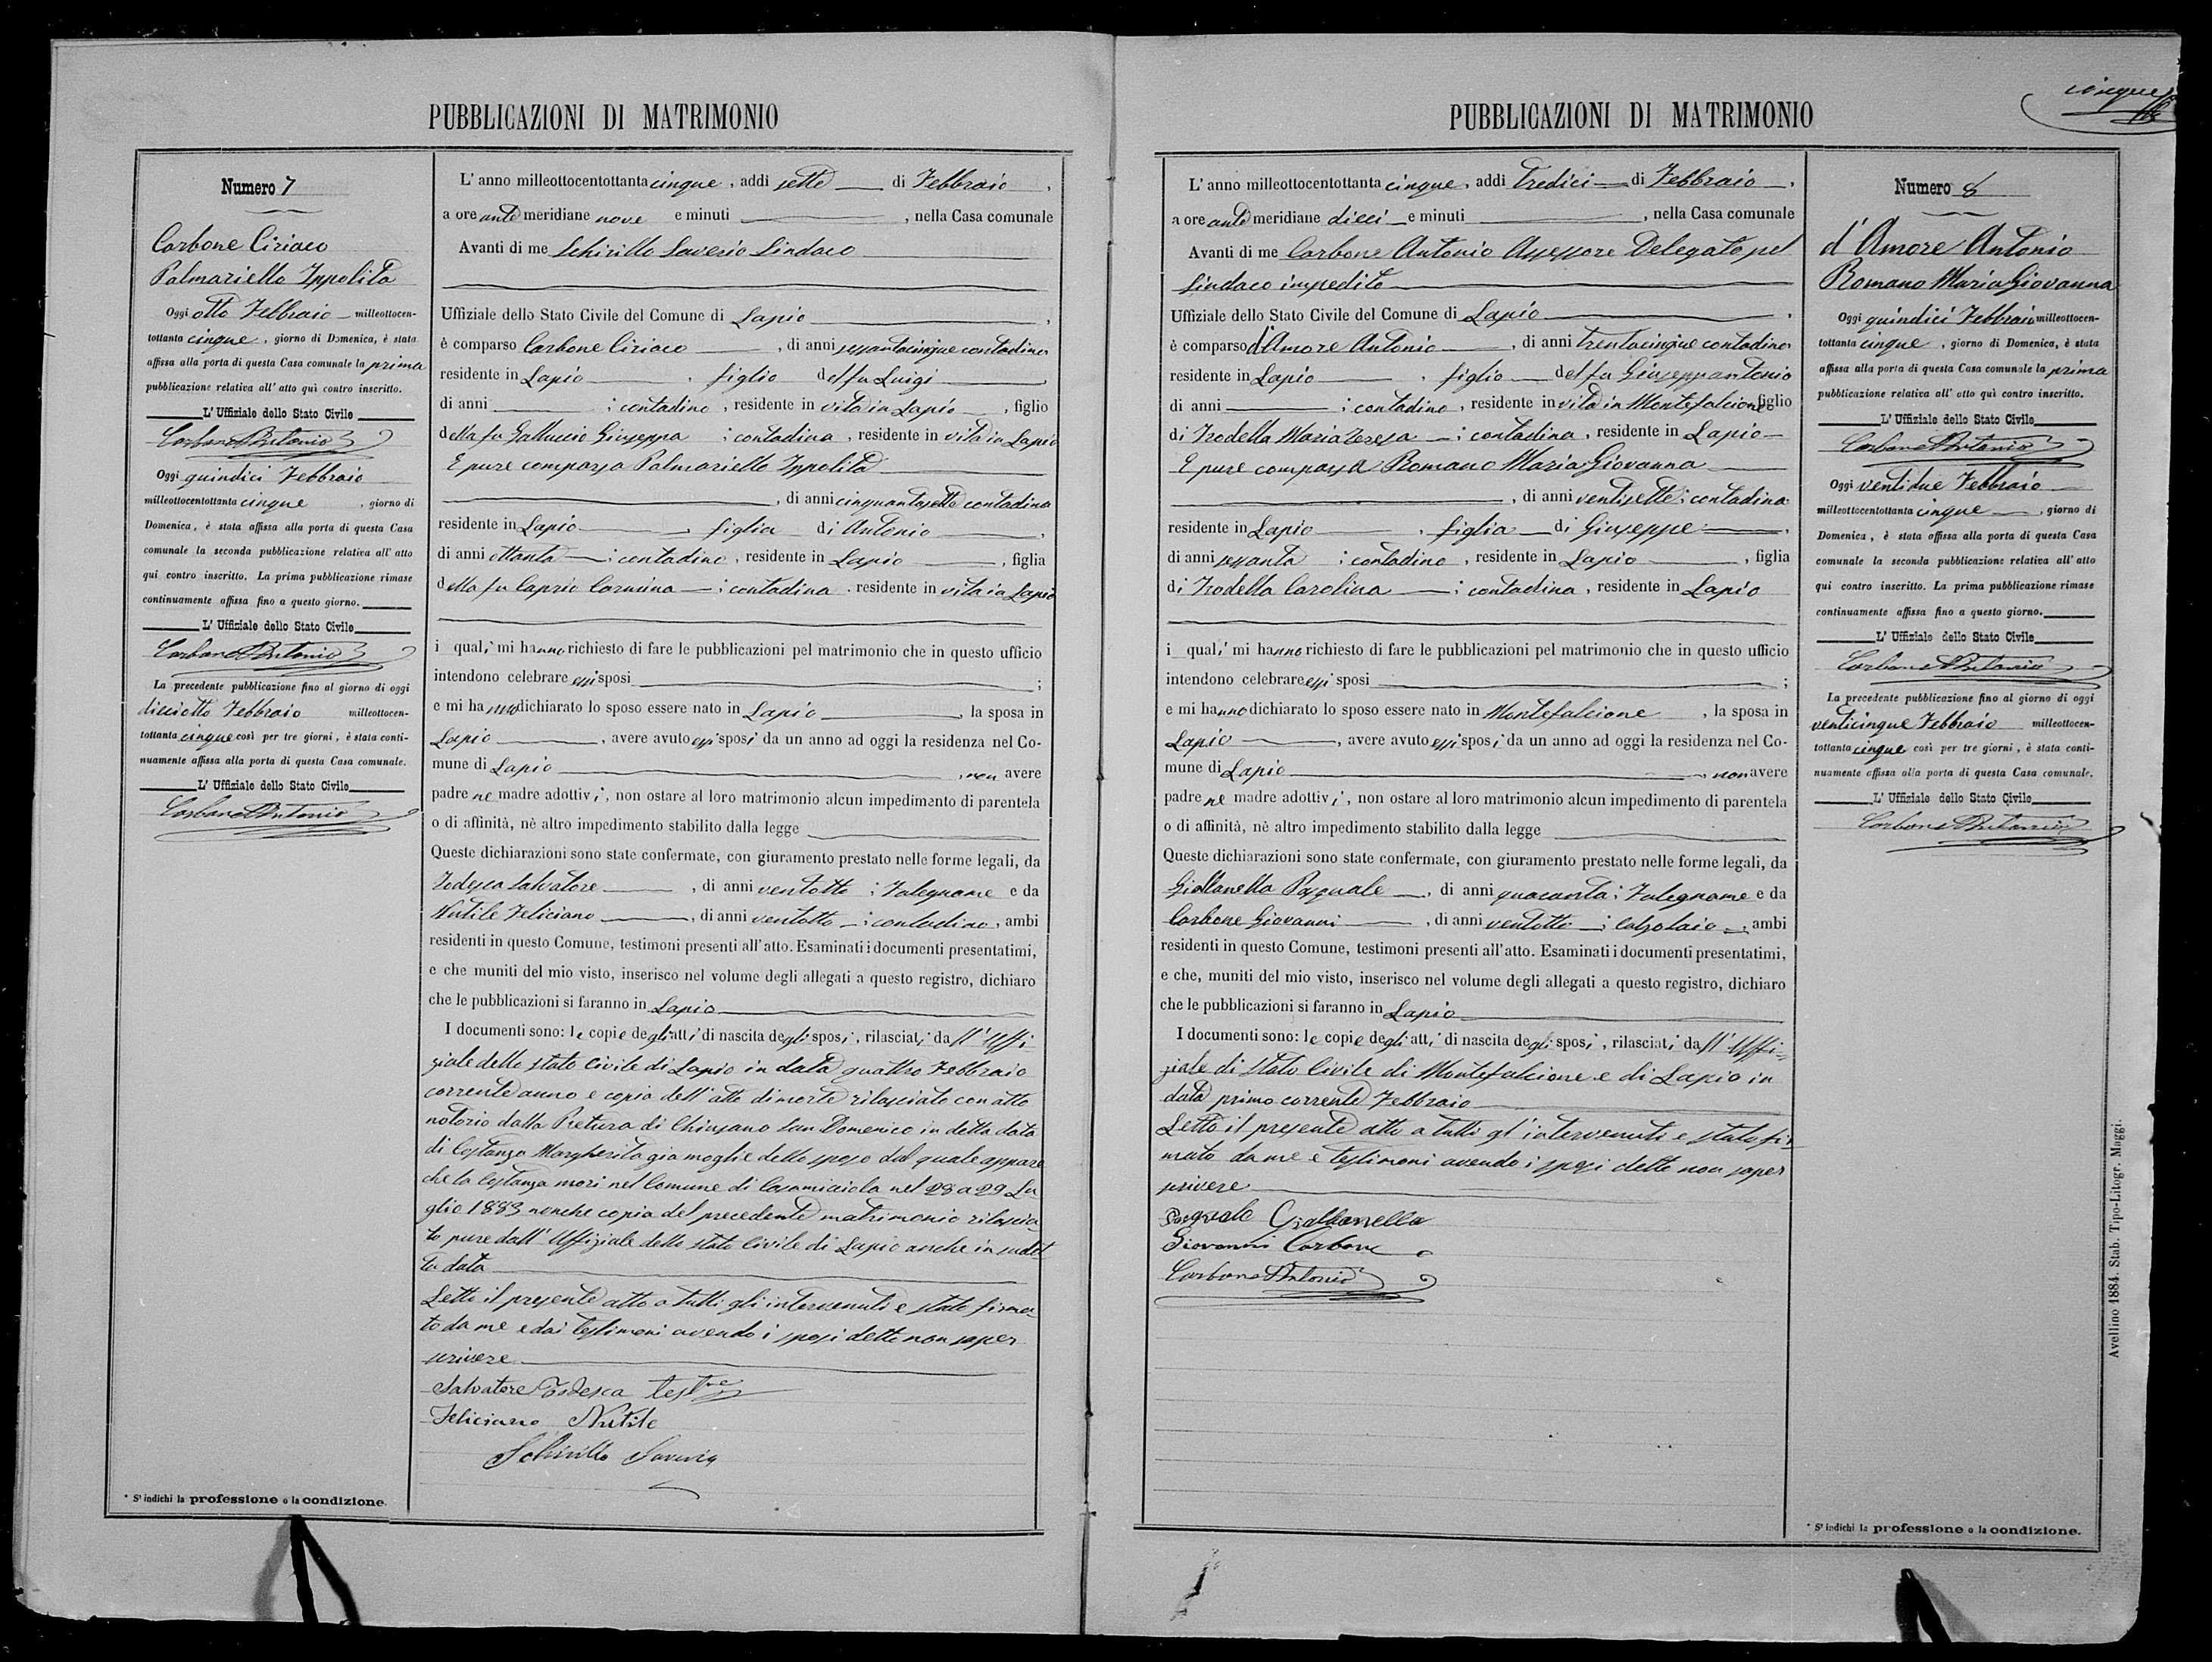 cinque
PUBBLICAZIONI DI MATRIMONIO
Numero 7
Carbone Ciriaco
Palmariello Ippolita
Oggi otto Febbraio milleottocen-
tottanta cinque, giorno di Domenica, è stata
affissa alla porta di questa Casa comunale la prima
pubblicazione relativa all' atto quì contro inscritto.
L' Uffiziale dello Stato Civile
Carbone Antonio
Oggi quindici Febbraio
milleottocentottanta cinque, giorno di
Domenica, è stata affissa alla porta di questa Casa
comunale la seconda pubblicazione relativa all' atto
qui contro inscritto. La prima pubblicazione rimase
continuamente affissa fino a questo giorno.
L' Uffiziale dello Stato Civile
Carbone Antonio
La precedente pubblicazione fino al giorno di oggi
dieciotto Febbraio milleottocen-
tottanta cinque così per tre giorni, è stata conti-
nuamente affissa alla porta di questa Casa comunale.
L' Uffiziale dello Stato Civile
Carbone Antonio
* S' indichi la professione o la condizione.
L' anno milleottocentottanta cinque, addi sette di Febbraio,
a ore ante meridiane nove e minuti , nella Casa comunale
Avanti di me Schirillo Saverio Sindaco
Uffiziale dello Stato Civile del Comune di Lapio,
è comparso Carbone Ciriaco, di anni sessantacinque contadino
residente in Lapio, figlio del fu Luigi
di anni ; contadino, residente in vita in Lapio, figlio
della fu Galluccio Giuseppa ; contadina, residente in vita in Lapio
E pure comparsa Palmariello Ippolita
, di anni cinquantasette contadina
residente in Lapio, figlia di Antonio,
di anni ottanta ; contadino, residente in Lapio, figlia
della fu Caprio Carmina ; contadina, residente in vita in Lapio
i quali mi hanno richiesto di fare le pubblicazioni pel matrimonio che in questo ufficio
intendono celebrare essi sposi ;
e mi hanno dichiarato lo sposo essere nato in Lapio, la sposa in
Lapio, avere avuto essi sposi da un anno ad oggi la residenza nel Co-
mune di Lapio, non avere
padre ne madre adottivi, non ostare al loro matrimonio alcun impedimento di parentela
o di affinità, nè altro impedimento stabilito dalla legge
Queste dichiarazioni sono state confermate, con giuramento prestato nelle forme legali, da
Todesca Salvatore, di anni ventotto ; Falegname e da
Nutile Feliciano, di anni ventotto ; contadino, ambi
residenti in questo Comune, testimoni presenti all' atto. Esaminati i documenti presentatimi,
e che muniti del mio visto, inserisco nel volume degli allegati a questo registro, dichiaro
che le pubblicazioni si faranno in Lapio
I documenti sono: le copie degli atti di nascita degli sposi, rilasciati dall' Uffi-
ziale dello stato Civile di Lapio in data quattro Febbraio
corrente anno e copia dell' atto di morte rilasciato con atto
notorio dalla Pretura di Chiusano San Domenico in detta data
di Costanza Margherita gia moglie dello sposo dal quale appare
che la Costanza morì nel Comune di Casamiciola nel 28 a 29 Lu
glio 1883 nonche copia del precedente matrimonio rilascia
to pure dall' Uffiziale dello stato Civile di Lapio anche in sudet
ta data
Letto il presente atto a tutti gli intervenuti e stato firma
to da me e dai testimoni avendo i sposi detto non saper
scrivere
Salvatore Todesca
Feliciano Nutile
Schirillo Saverio
PUBBLICAZIONI DI MATRIMONIO
L' anno milleottocentottanta cinque, addi Tredici di Febbraio,
a ore ante meridiane dieci e minuti , nella Casa comunale
Avanti di me Carbone Antonio Assessore Delegato pel
Sindaco impedito
Uffiziale dello Stato Civile del Comune di Lapio,
è comparso d'Amore Antonio, di anni trentacinque contadino
residente in Lapio, figlio del fu Giuseppantonio
di anni ; contadino, residente in vita in Montefalcione, figlio
di Trodella Maria Teresa ; contadina, residente in Lapio
E pure comparsa Romano Maria Giovanna
, di anni ventisette ; contadina
residente in Lapio, figlia di Giuseppe,
di anni sessanta ; contadino, residente in Lapio, figlia
di Trodella Carolina ; contadina, residente in Lapio
i quali mi hanno richiesto di fare le pubblicazioni pel matrimonio che in questo ufficio
intendono celebrare essi sposi ;
e mi hanno dichiarato lo sposo essere nato in Montefalcione, la sposa in
Lapio, avere avuto essi sposi da un anno ad oggi la residenza nel Co-
mune di Lapio, non avere
padre ne madre adottivi, non ostare al loro matrimonio alcun impedimento di parentela
o di affinità, nè altro impedimento stabilito dalla legge
Queste dichiarazioni sono state confermate, con giuramento prestato nelle forme legali, da
Giallanella Pasquale, di anni quaranta ; Falegname e da
Carbone Giovanni, di anni ventotto ; Calzolaio, ambi
residenti in questo Comune, testimoni presenti all' atto. Esaminati i documenti presentatimi,
e che, muniti del mio visto, inserisco nel volume degli allegati a questo registro, dichiaro
che le pubblicazioni si faranno in Lapio
I documenti sono: le copie degli atti di nascita degli sposi, rilasciati dall' Uffi-
ziale di stato Civile di Montefalcione e di Lapio in
data primo corrente Febbraio
Letto il presente atto a tutti gl' intervenuti e stato fir
mato da me e testimoni avendo i sposi detto non saper
scrivere
Pasquale Giallanella
Giovanni Carbone
Carbone Antonio
Numero 8
d' Amore Antonio
Romano Maria Giovanna
Oggi quindici Febbraio milleottocen-
tottanta cinque, giorno di Domenica, è stata
affissa alla porta di questa Casa comunale la prima
pubblicazione relativa all' atto quì contro inscritto.
L' Uffiziale dello Stato Civile
Carbone Antonio
Oggi ventidue Febbraio
milleottocentottanta cinque, giorno di
Domenica, è stata affissa alla porta di questa Casa
comunale la seconda pubblicazione relativa all' atto
qui contro inscritto. La prima pubblicazione rimase
continuamente affissa fino a questo giorno.
L' Uffiziale dello Stato Civile
Carbone Antonio
La precedente pubblicazione fino al giorno di oggi
venticinque Febbraio milleottocen-
tottanta cinque così per tre giorni, è stata conti-
nuamente affissa alla porta di questa Casa comunale.
L' Uffiziale dello Stato Civile
Carbone Antonio
* S' indichi la professione o la condizione.
Avellino 1884. Stab. Tipo-Litogr. Maggi.